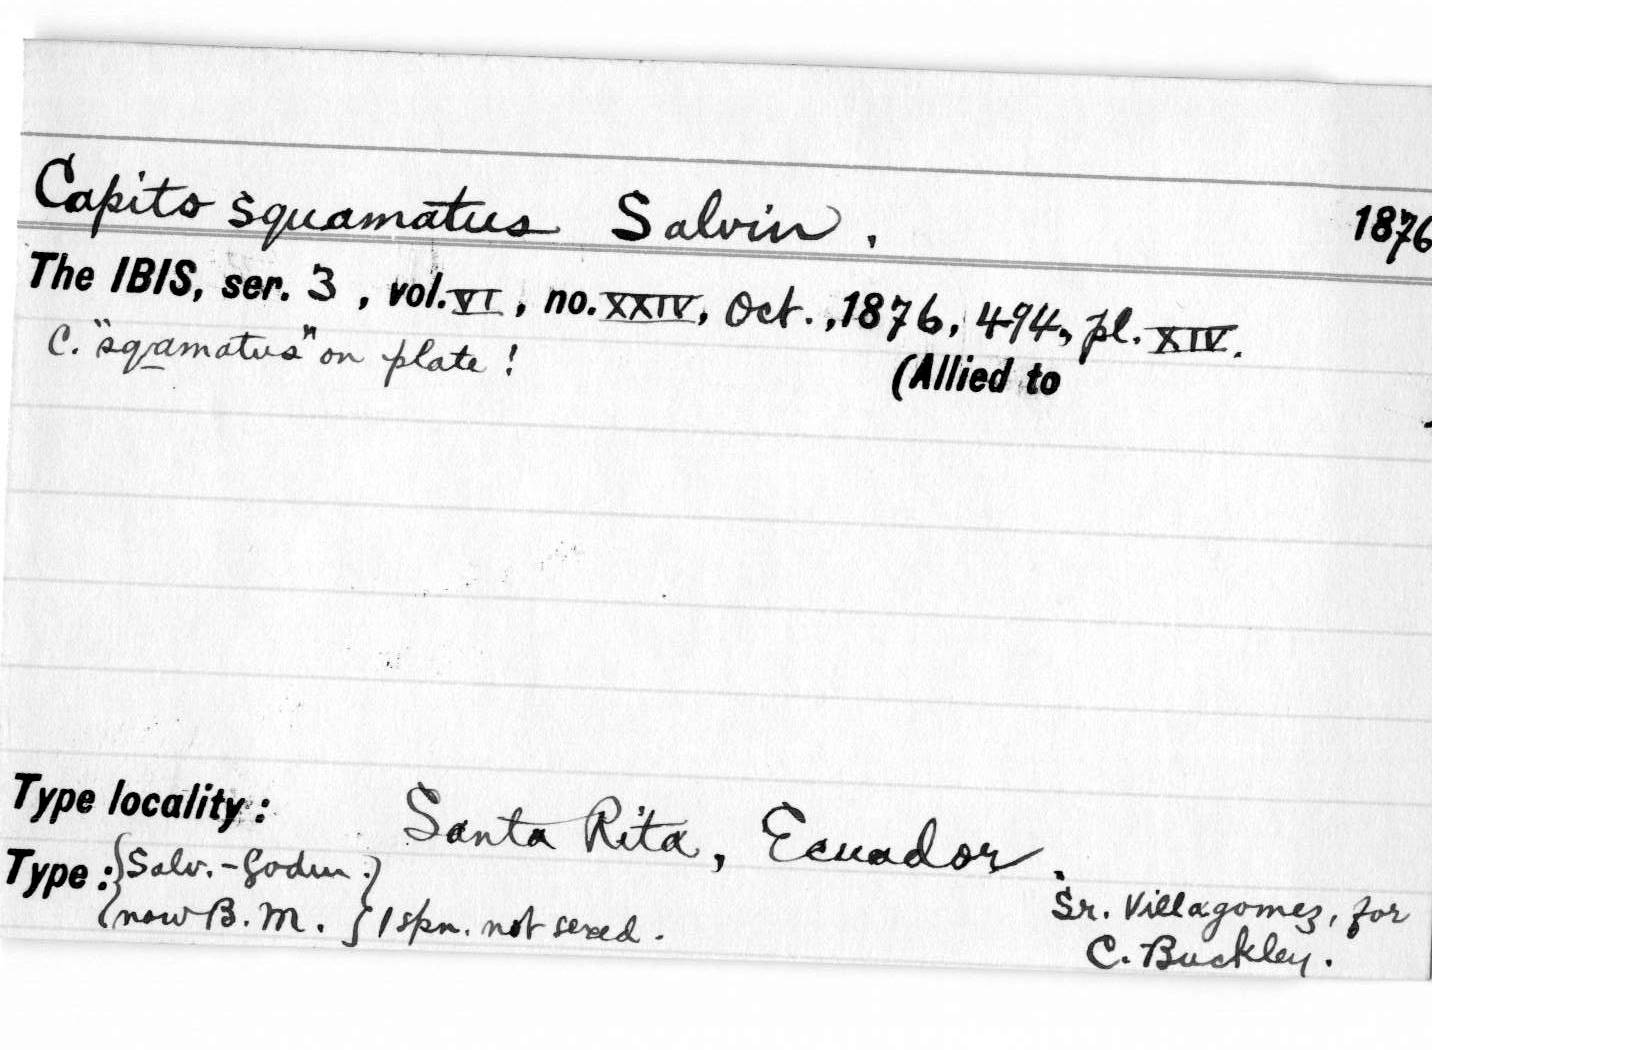 Capito squamatus Salvin. 1876
The IBIS, ser. 3, vol. VI, no. XXIV, Oct., 1876, 494, pl. XIV.
C. "sqamatus" on plate!
(Allied to
Type locality: Santa Rita, Ecuador.
Type: {Salv.-Godm.}
{now B.M.} 1 spn. not sexed.
Sr. Villagomez, for
C. Buckley.